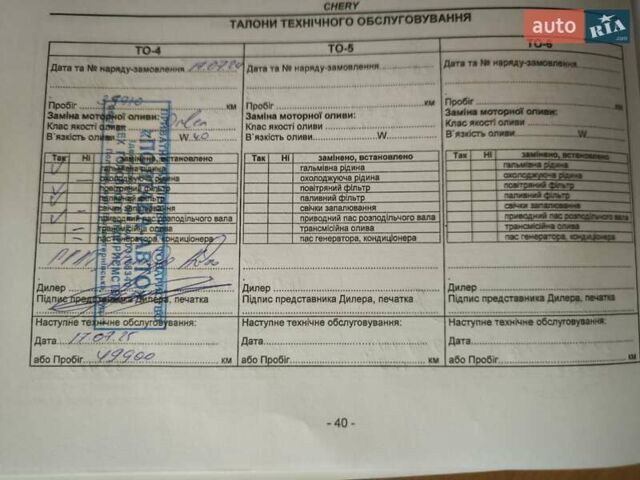 CHERY
auto RIA .com
ТАЛОНИ ТЕХНІЧНОГО ОБСЛУГОВУВАННЯ
ТО-4 ТО-5 ТО-6
Дата та № наряду-замовлення 17.07.24 Дата та № наряду-замовлення Дата та № наряду-замовлення
Пробіг км Пробіг км Пробіг км
Заміна моторної оливи: Заміна моторної оливи: Заміна моторної оливи:
Клас якості оливи Клас якості оливи Клас якості оливи
В`язкість оливи W 40 В`язкість оливи W В`язкість оливи W
Так Ні замінено, встановлено Так Ні замінено, встановлено Так Ні замінено, встановлено
гальмівна рідина гальмівна рідина гальмівна рідина
охолоджуюча рідина охолоджуюча рідина охолоджуюча рідина
повітряний фільтр повітряний фільтр повітряний фільтр
паливний фільтр паливний фільтр паливний фільтр
свічки запалювання свічки запалювання свічки запалювання
приводний пас розподільчого вала приводний пас розподільчого вала приводний пас розподільчого вала
трансмісійна олива трансмісійна олива трансмісійна олива
пас генератора, кондиціонера пас генератора, кондиціонера пас генератора, кондиціонера
Дилер Дилер Дилер
Підпис представника Дилера, печатка Підпис представника Дилера, печатка Підпис представника Дилера, печатка
Наступне технічне обслуговування: Наступне технічне обслуговування: Наступне технічне обслуговування:
Дата 17.07.25 Дата Дата
або Пробіг 49900 км або Пробіг км або Пробіг км
- 40 -